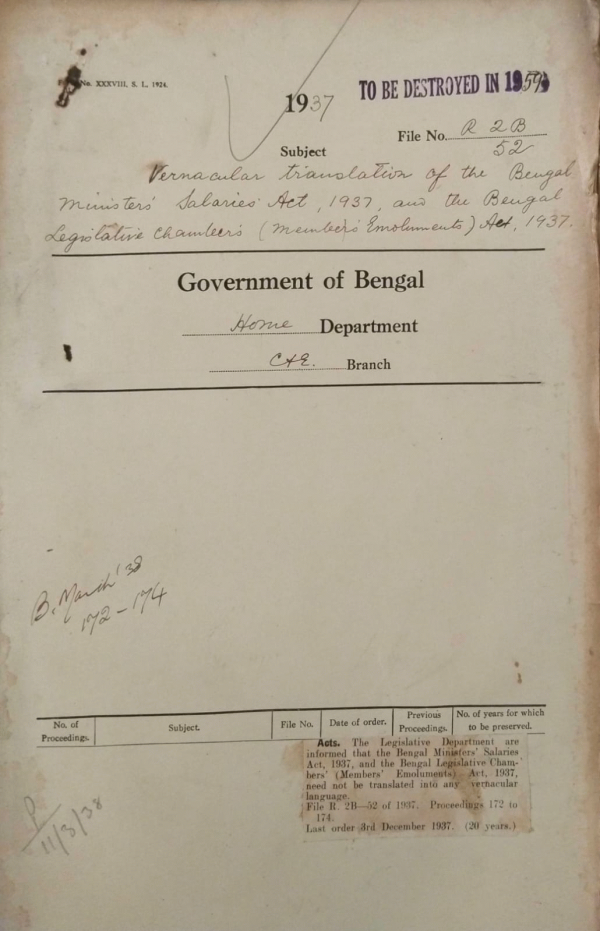 No. XXXVIII, S. L. 1924.
1937
TO BE DESTROYED IN 1959
File No. R 2B
52
Subject
Vernacular translation of the Bengal
Ministers' Salaries Act, 1937, and the Bengal
Legislative Chambers (Members' Emoluments) Act, 1937.
Government of Bengal
Home Department
C&E. Branch
B. March '38
172 - 174
No. of Proceedings.
Subject.
File No.
Date of order.
Previous Proceedings.
No. of years for which to be preserved.
Acts. The Legislative Department are
informed that the Bengal Ministers' Salaries
Act, 1937, and the Bengal Legislative Cham-
bers' (Members' Emoluments) Act, 1937,
need not be translated into any vernacular
language.
File R. 2B—52 of 1937. Proceedings 172 to
174.
Last order 3rd December 1937. (20 years.)
11/3/38